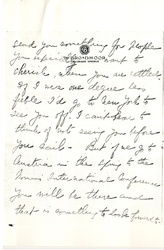 send you something for people
BROADMOOR
you
cherish, when you are settled.
If I were one degree less
fickle I'd go to New York to
see you off. I can't bear to
think of not seeing you before
you sail. But if I go to
Austria in the Spring to the
International Conference
you will be there and
that is something to look forward to.